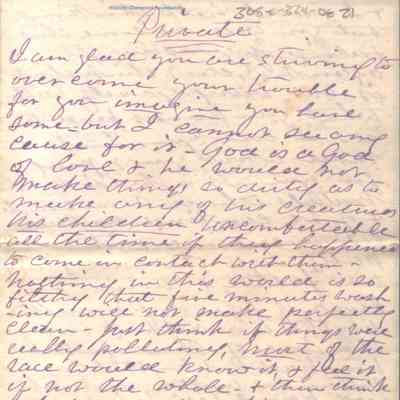 Private
I am glad you are striving to
overcome your trouble
for you imagine you have
some - but I cannot see any
cause for it - God is a God
of love & he would not
make things so dirty as to
make any of his creatures
his children uncomfortable
all the time if they happened
to come in contact with them -
nothing in this world is so
filthy that five minutes wash
-ing will not make perfectly
clean - Just think if things were
really polluting, most of the
race would know it, & feel it
if not the whole - & then think